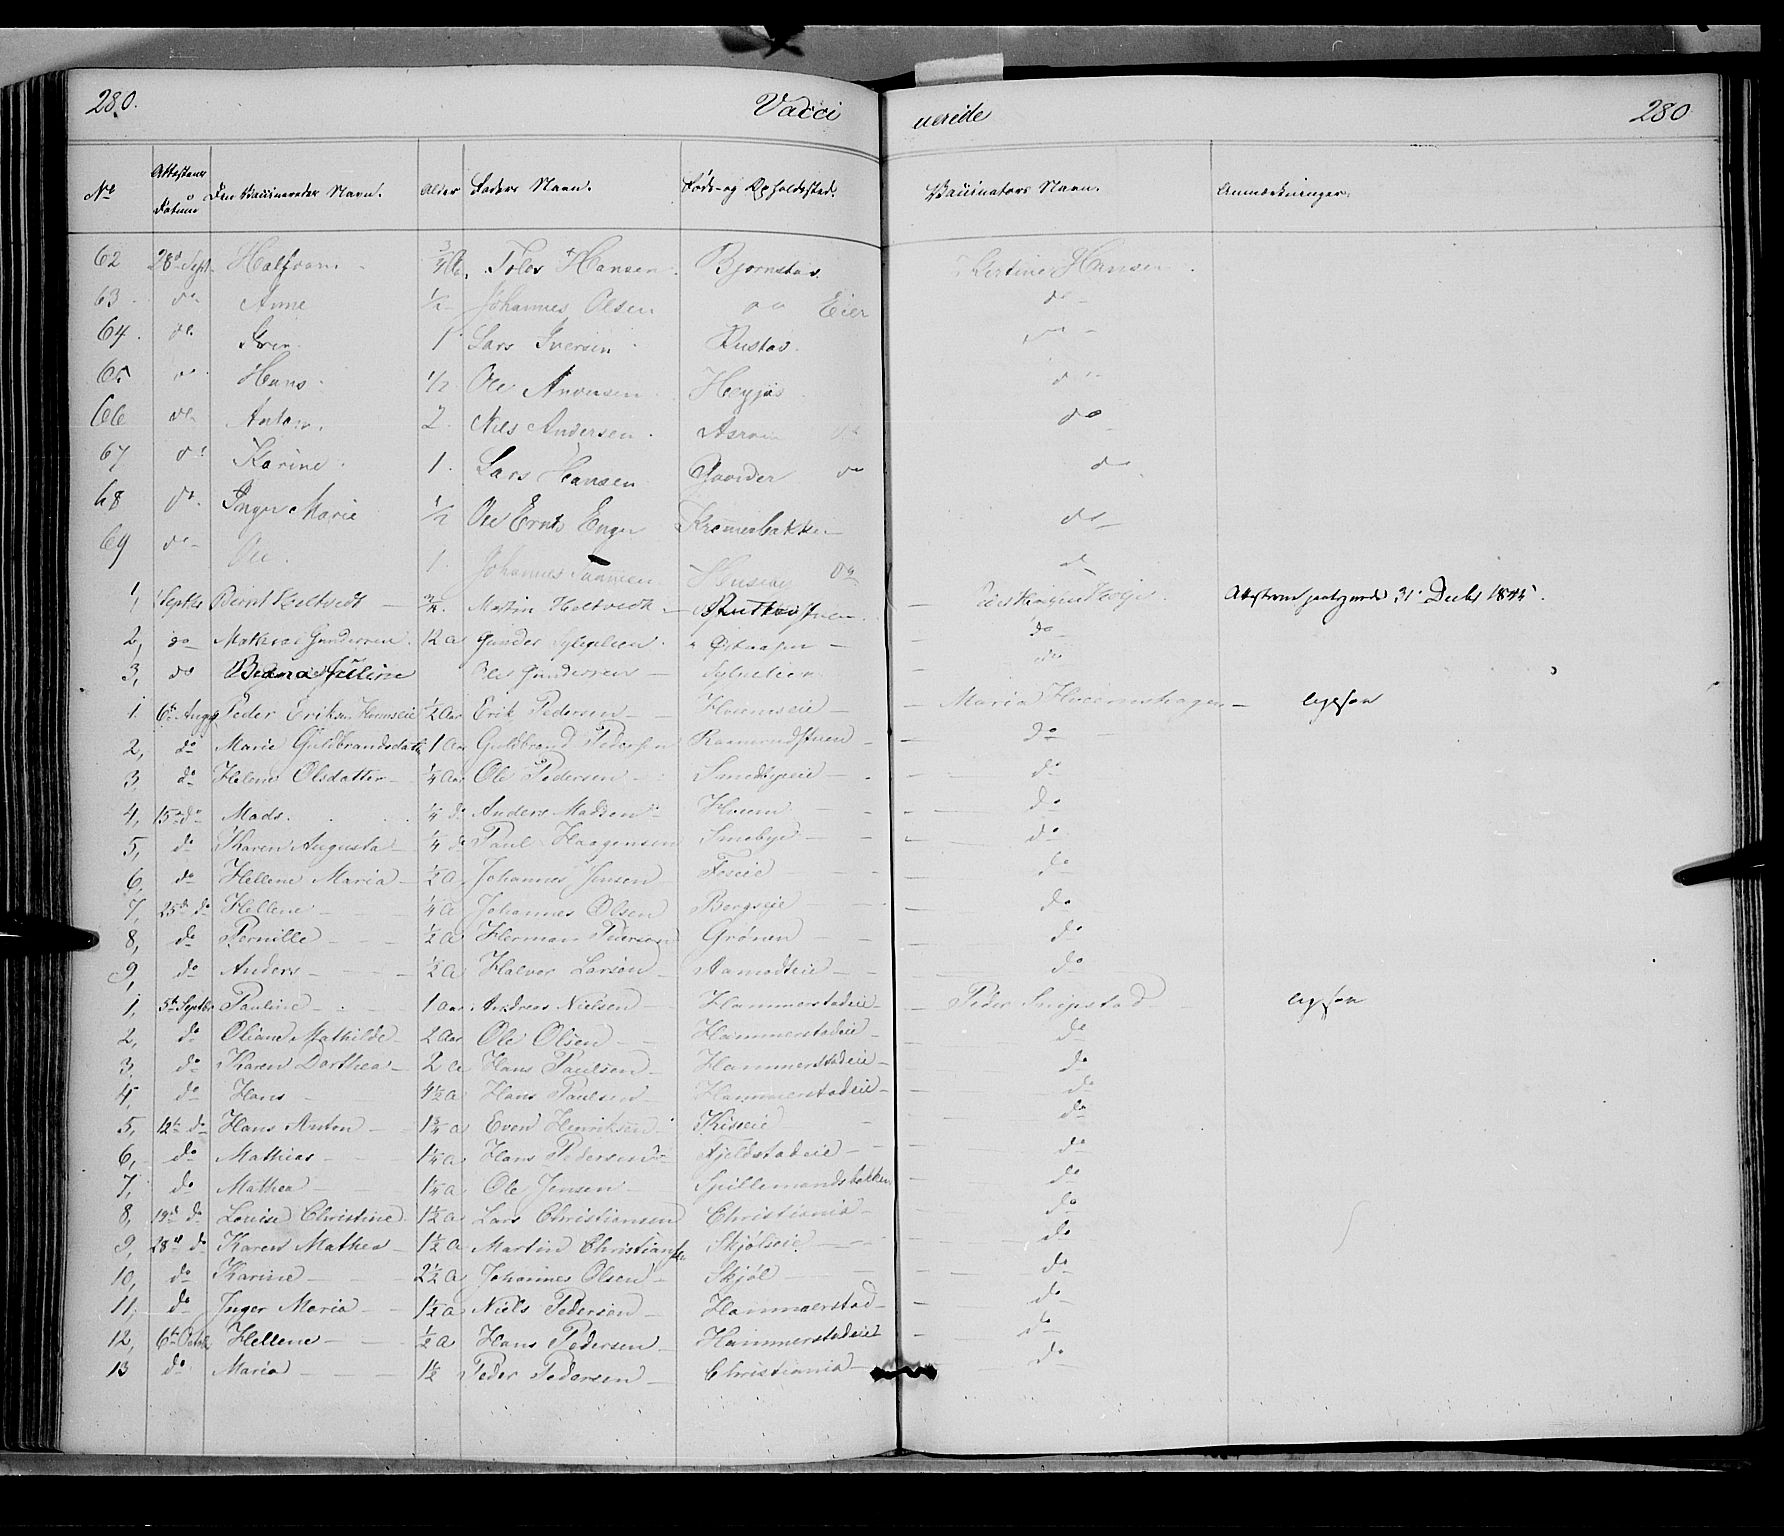 280. Vacci nerede 280
No Attestens Datum Den Vaccineredes Navn. Alder Faders Navn. Føde- og Opholdssted. Vaccinators Navn. Anmærkninger.
62 28d Sept. Halfvar 3/4 A. Hansen Bjørnstad Kirstine Hansen
63 do Anne 1/2 Johannes Olsen do Eier do
64 do Iver 1 Lars Iversen Rustad do
65 do Hans 1/2 Ole Andersen do
66 do Anton 2 Niels Andersen do do
67 do Karine 1 Lars Hansen do do
68 do Inger Marie 1/2 Ole Enger Kremerbakken do
69 do Ole 1 Johannes do do
1, Septbr Bernt Holtvedt 3/4 Martin Holtvedt 31 Decbr 1845
2, do Gundersen 12 a Gunder do
3, do Juline Ole Gundersen do
1 6te Aug Peder Eriksen Hvamseie 1/2 Aar Erik Pedersen Hvamseie Maria Hvamshagen
2, do Marie Guldbrandsdatter 1 Aar Guldbrand Pedersen do
3, do Helene Olsdatter 1/4 Aar Ole Pedersen Smedbyeie do
4, 15de do Mads 1/4 do Anders Madsen Hvam do
5, do Karen Augusta 1/4 do Paul Haagensen Smebye do
6, do Hellene Maria 1/2 A Johannes Jensen Foseie do
7, 25de do Hellene 1/4 A Johannes Olsen Borgseie do
8, do Pernille 1/2 A Herman Pedersen Grønen do
9, do Anders 1/2 A Halvor Larsen Aamodteie do
1, 5te Septbr Pauline 1 Aar Andreas Nielsen Hammerstadeie Peder
2, do Oliane Mathilde 2 Aar Ole Olsen Hammerstadeie do
3, do Karen Dorthea 2 A Hans Paulsen Hammerstadeie do
4, do Hans 4 1/2 A Hans Paulsen Hammerstadeie do
5, 12te do Hans Anton 1 3/4 A Even Henriksen Kiseie do
6, do Mathias 1 1/4 A Hans Pedersen Fjeldstadeie do
7, do Mathea 1 1/4 A Ole Jensen Spillemandsbakken do
8, 19de do Louise Christine 1 1/2 A Lars Christiansen Christiania do
9, 28de do Karen Mathea 1 1/2 A Martin Christiansen Skjølseie do
10, do Karine 2 1/2 A Johannes Olsen Skjøl do
11, do Inger Maria 1 1/2 A Niels Pedersen Hammerstad do
12, 6te Octbr Hellene 1/2 A Hans Pedersen Hammerstadeie do
13 do Maria 1 1/2 Peder Pedersen Christiania do